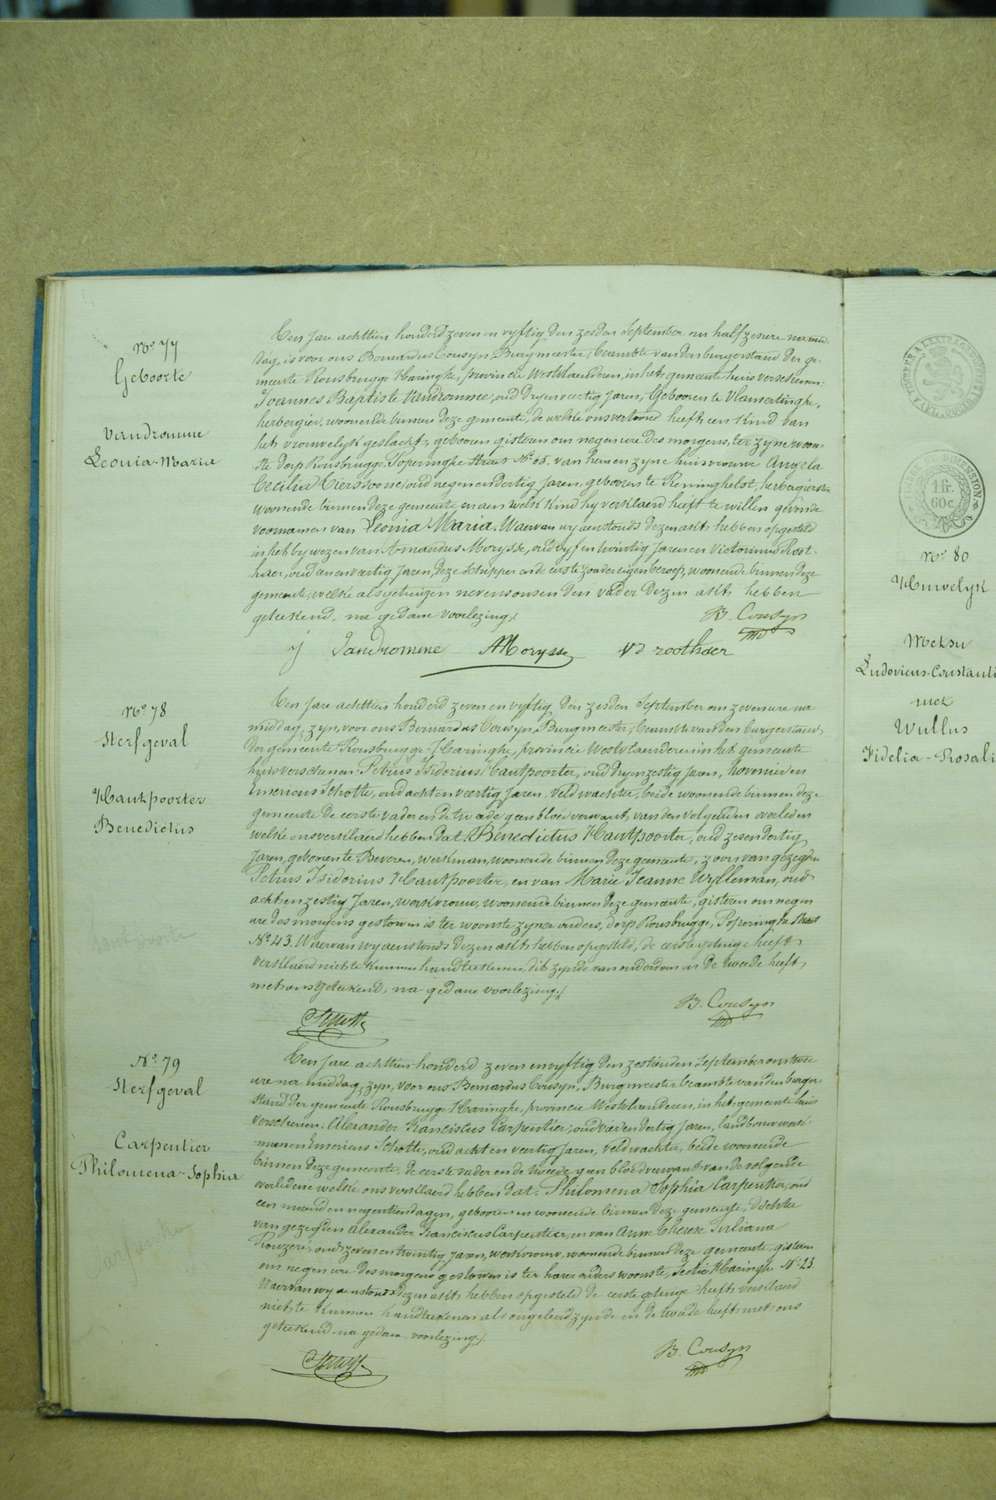 No 77
Geboorte
Vandromme
Leonia-Maria
Een Jare achttien honderd zeven en vyftig den zesden September om half zes ure namid
dag, is voor ons Bernardus Cousyn Burgmeester, beambte van den burgerstand der ge-
meente Rousbrugge Haringhe, provincie Westvlaanderen, in het gemeente huis verschenen
Joannes Baptiste Vandromme, oud dryenveertig Jaren, Geboren te Vlamertinghe,
herbergier, woonende binnen deze gemeente, de welke ons vertoond heeft een kind van
het vrouwelyk geslacht, geboren gisteren om negen ure des morgens, ter zyne woon-
ste dorp Rousbrugge, Poperinghe straet No 05, van hem en zyne huisvrouwe Angela
Cecilia oud negenendertig Jaren, geboren te Reninghelst, herbergierster
woonende binnen deze gemeente en aen welk kind hy verklaerd heeft te willen geven de
voornamen van Leonia Maria. Waervan wy aenstonds dezen akt hebben opgesteld
in het bywezen van Armandus Morysse, oud vyfentwintig Jaren en Victorinus Root-
haer, oud eenenveertig Jaren, deze schipper en de eerste zonder eigen beroep, woonende binnen deze
gemeente, welke als getuigen nevens ons en den vader dezen akt hebben
geteekend, na gedane voorlezing./
B. Cousyn
J Vandromme AMorysse VD roothaer
No 78
Sterfgeval
Hautpoorter
Benedictus
Een Jare achttien honderd zeven en vyftig den zesden September om zeven ure na
middag, zyn voor ons Bernardus Cousyn, Burgmeester, beambte van den burgerstand
der gemeente Rousbrugge-Haringhe, provincie Westvlaanderen in het gemeente
huis verschenen Petrus Isidorius Hautpoorter, oud dryenzestig Jaren, hovenier en
Emericus Schotte, oud achtenveertig Jaren, veldwachter, beide woonende binnen deze
gemeente de eerste vader en de tweede geen bloedverwant, van den volgenden overleden
welke ons verklaerd hebben dat Benedictus Hautpoorter, oud zesendertig
Jaren, geboren te Beveren, werkman, woonende binnen deze gemeente, zoon van gezegden
Petrus Isidorius Hautpoorter, en van Marie Jeanne Wylleman, oud
achtenzestig Jaren, werkvrouw, woonende binnen deze gemeente, gisteren om negen
ure des morgens gestorven is ter woonste zyner ouders, dorp Rousbrugge, Poperinghe straet
No 43. Waervan wy aenstonds dezen akt hebben opgesteld, de eerste getuige heeft
verklaerd niet te kunnen handteekenen, dit zynde van ouderdom en de tweede heeft
met ons geteekend, na gedane voorlezing./
B. Cousyn
No 79
Sterfgeval
Carpentier
Philomena-Sophia
Een Jare achttien honderd zeven en vyftig den zestienden September om twee
ure na middag, zyn, voor ons Bernardus Cousyn, Burgmeester beambte van den burger-
stand der gemeente Rousbrugge Haringhe, provincie Westvlaanderen, in het gemeente huis
verschenen Alexander Franciscus Carpentier, oud vierendertig Jaren, landbouwwerk-
man en Emericus Schotte, oud achtenveertig Jaren, veldwachter, beide woonende
binnen deze gemeente, de eerste vader en de tweede geen bloedverwant van de volgende
overledene welke ons verklaerd hebben dat Philomena Sophia Carpentier, oud
een maend en negentien dagen, geboren en woonende binnen deze gemeente, dochter
van gezegden Alexander Franciscus Carpentier, en van Anne Therese Juliana
oud zevenentwintig Jaren, werkvrouw, woonende binnen deze gemeente, gisteren
om negen ure des morgens gestorven is ter harer ouders woonste, sectie Haringhe No 23
Waervan wy aenstonds dezen akt hebben opgesteld de eerste getuige heeft verklaerd
niet te kunnen handteekenen als ongeleerd zynde en de tweede heeft met ons
geteekend na gedane voorlezing./
B. Cousyn
1 fr.
60 c
No 80
Huwelyk
Ludovicus-Constanti
met
Wullus
Fidelia-Rosali